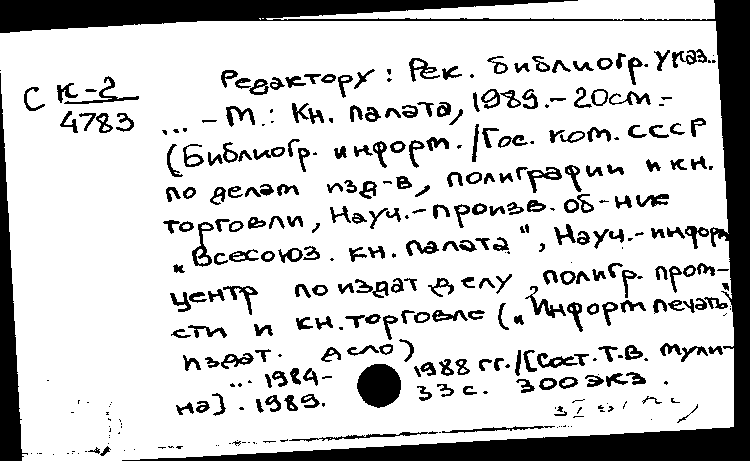 С К-2
4783
Редактору: Рек. библиогр. указ..
... - М.: Кн. палата, 1989. - 20см. -
(Библиогр. информ. / Гос. ком. СССР
по делам изд-в, полиграфии и кн.
торговли, Науч.-произв. об-ние
"Всесоюз. кн. палата", Науч.-информ
центр по издат делу, полигр. пром-
сти и кн. торговле ("Информпечать")
Издат. дело)
... 1984-1988 гг. / [Сост. Т.В. Мули-
на]. 1989. 33с. 300 экз.